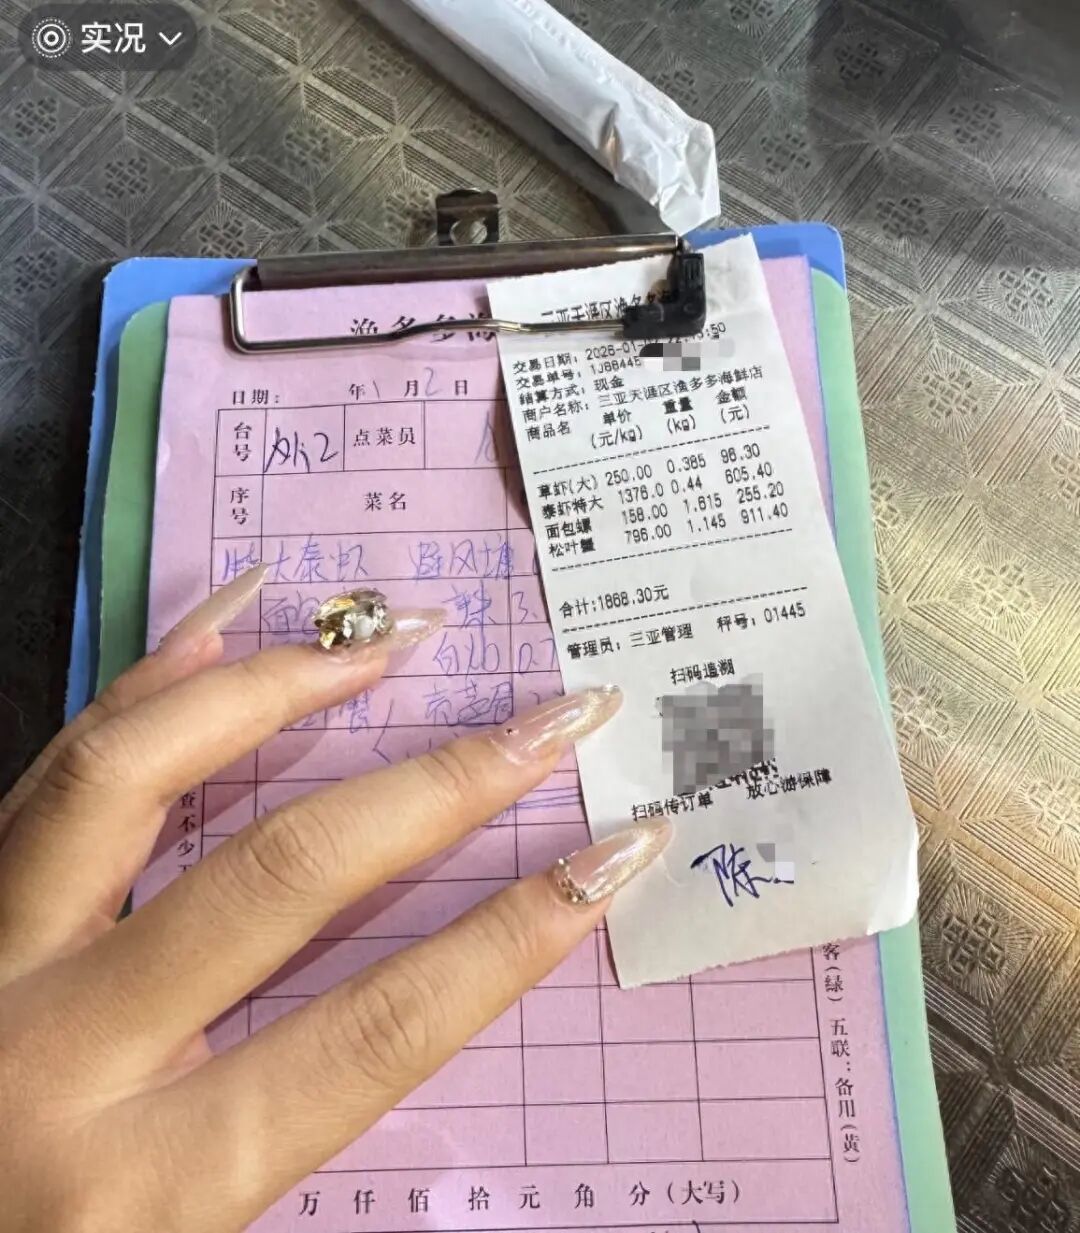 实况
渔多多海
日期： 年1月2日
台号
外2
点菜员
序号
菜名
特大泰虾 避风塘
面包
辣
白灼 0.7
蟹
查不少
三亚天涯区渔多多海
交易日期：2026-01-
交易单号：1J88445
结算方式：现金
商户名称：三亚天涯区渔多多海鲜店
商品名 单价 重量 金额
(元/kg) (kg) (元)
草虾(大) 250.00 0.385 96.30
泰虾特大 1376.0 0.44 605.40
面包螺 158.00 1.615 255.20
松叶蟹 796.00 1.145 911.40
合计:1868.30元
管理员：三亚管理 秤号：01445
扫码追溯
扫码传订单 放心游保障
陈
客(绿) 五联：备用(黄)
万 仟 佰 拾 元 角 分(大写)